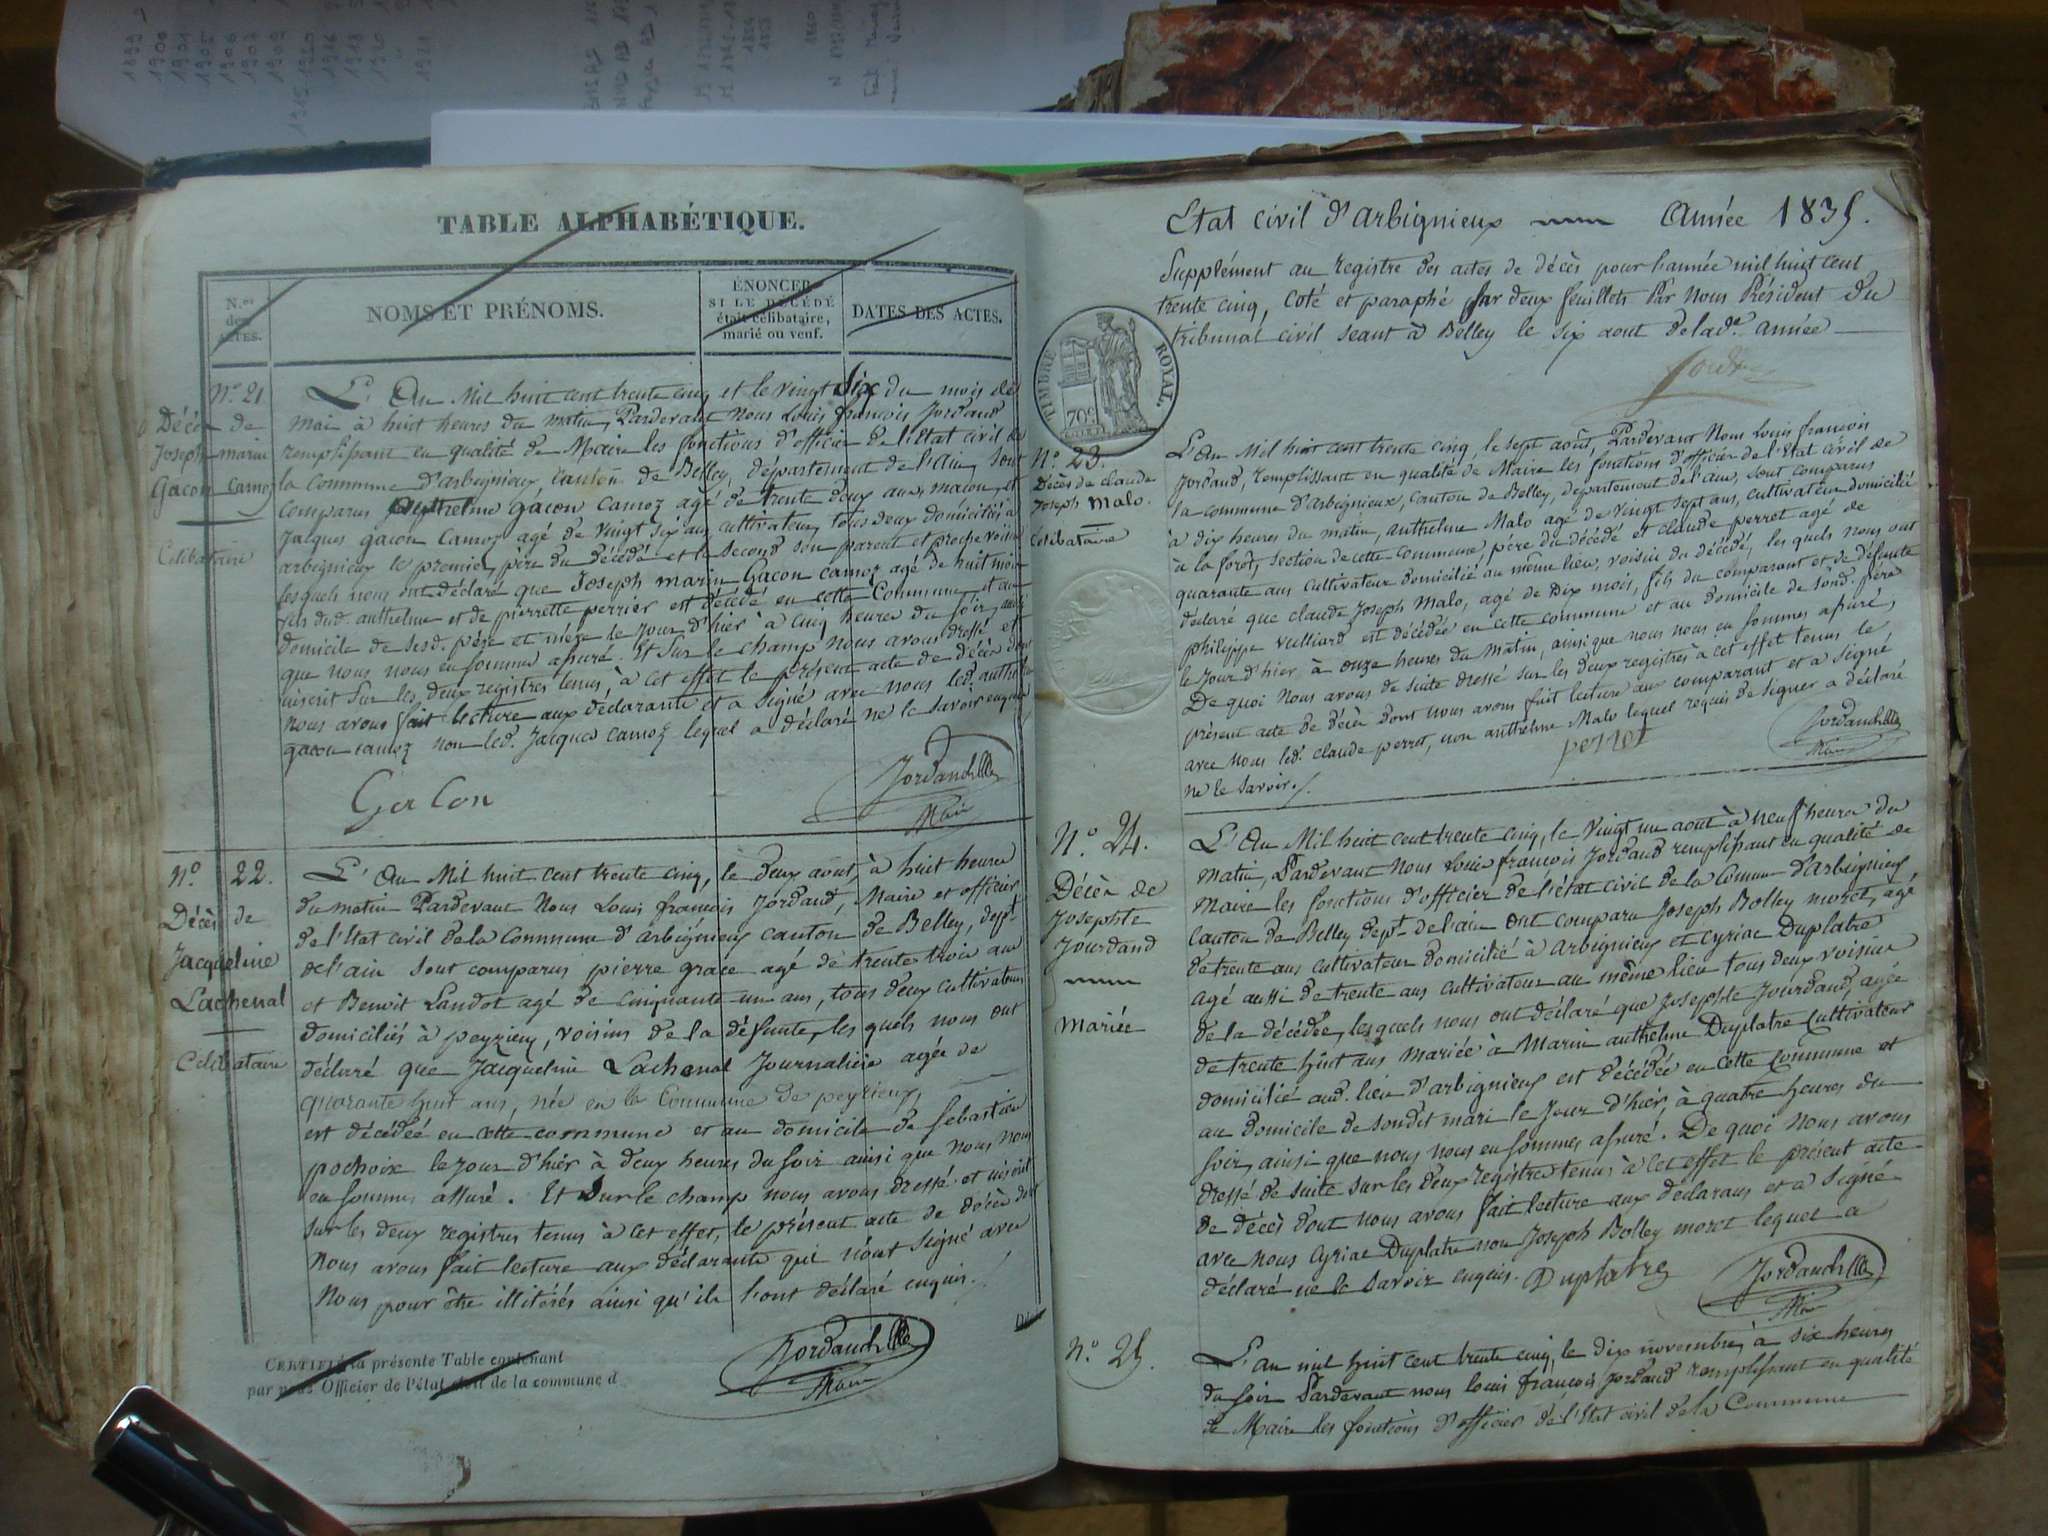 TABLE ALPHABÉTIQUE.
N.os
des
ACTES.
NOMS ET PRÉNOMS.
ÉNONCER
SI LE DÉCÉDÉ
était célibataire,
marié ou veuf.
DATES DES ACTES.
N° 21
Décès de
Joseph marin
Gacon Camoz
Celibataire
L'An Mil huit cent trente cinq et le vingt six du mois de
mai à huit heures du matin, Pardevant Nous Louis françois Jordand
remplissant en qualité de Maire les fonctions d'officier de l'Etat civil de
la Commune d'arbignieux, Canton de Belley, département de l'ain, sont
comparus anthelme gacon Camoz agé de trente deux ans, macon, et
Jacques gacon Camoz agé de vingt six ans cultivateur, tous deux domiciliés à
arbignieux le premier, père du décédé et le second son parent et proche voisin
lesquels nous ont déclaré que Joseph marin Gacon camoz agé de huit mois
fils dud. anthelme et de pierrette perrier est décédé en cette Commune et au
domicile de sesd. père et mère le jour d'hier à cinq heures du soir, ainsi
que nous nous en sommes assuré. Et sur le champ nous avons dressé et
inscrit sur les deux registres tenus, à cet effet le présent acte de décès dont
nous avons fait lecture aux déclarants et a signé avec nous led. anthelme
gacon camoz non led. Jacques camoz lequel a déclaré ne le savoir enquis
Gacon
Jordand
Maire
N° 22.
Décès de
Jacqueline
Lachenal
Celibataire
L'An Mil huit cent trente cinq, le deux août, à huit heures
du matin Pardevant Nous Louis francois Jordand, Maire et officier
de l'Etat civil de la Commune d'arbignieux canton de Belley, dept
de l'ain sont comparus pierre grace agé de trente trois ans
et Benoit Landot agé de cinquante un ans, tous deux cultivateurs
domiciliés à peyrieux, voisins de la défunte, les quels nous ont
déclaré que Jacqueline Lachenal Journalière agée de
quarante huit ans, née en la Commune de peyrieux,
est décédée en cette commune et au domicile de Sebastien
pochoix le jour d'hier à deux heures du soir ainsi que nous nous
en sommes assuré. Et sur le champ nous avons dressé et inscrit
sur les deux registres tenus à cet effet, le présent acte de décès dont
nous avons fait lecture aux déclarants qui n'ont signé avec
nous pour être illitérés ainsi qu'ils l'ont déclaré enquis.
Jordand
Maire
CERTIFIÉ la présente Table contenant
par nous Officier de l'état civil de la commune d
Etat civil d'Arbignieux Année 1835.
Supplément au registre des actes de décès pour l'année mil huit cent
trente cinq, coté et paraphé par deux feuillets Par Nous Président du
tribunal civil seant à Belley le six aout de lade. année
TIMBRE ROYAL.
70c
N° 23.
Décès de claude
Joseph Malo.
Celibataire
L'An Mil huit cent trente cinq, le sept août, Pardevant Nous Louis francois
Jordand, remplissant en qualité de Maire les fonctions d'officier de l'Etat civil de
la commune d'arbignieux, Canton de Belley, département de l'ain, sont comparus
à dix heures du matin, anthelme Malo agé de vingt sept ans, cultivateur domicilié
à la forêt, section de cette commune, père du décédé et claude perret agé de
quarante ans cultivateur domicilié au même lieu, voisin du décédé, les quels nous ont
déclaré que claude Joseph Malo, agé de Dix mois, fils du comparant et de défunte
philippe vulliard est décédée en cette commune et au domicile de sond. père
le jour d'hier à onze heures du matin, ainsi que nous nous en sommes assuré,
De quoi Nous avons de suite dressé sur les deux registres à cet effet tenus le
présent acte de décès dont nous avons fait lecture aux comparants et a signé
avec nous led. claude perret, non anthelme Malo lequel requis de signer a déclaré
ne le savoir.
perret
Jordand
Maire
N° 24.
Décès de
Josephte
Jourdand
mariée
L'An Mil huit cent trente cinq, le vingt un aout à neuf heures du
matin, Pardevant Nous Louis françois Jordand remplissant en qualité de
Maire les fonctions d'officier de l'état civil de la Comune d'arbignieux
Canton de Belley dept de l'ain ont comparu Joseph Bolley moret, agé
de trente ans cultivateur domicilié à arbignieux et Cyriac Duplatre
agé aussi de trente ans cultivateur au même lieu tous deux voisins
de la décédée, lesquels nous ont déclaré que Josephte Jourdand, agée
de trente huit ans mariée à Marin anthelme Duplatre Cultivateur
domicilié aud. lieu d'arbignieux est décédée en cette commune et
au domicile de sondit mari le jour d'hier, à quatre heures du
soir, ainsi que nous nous en sommes assuré. De quoi nous avons
dressé de suite sur les deux registres tenus à cet effet le présent acte
de décès dont nous avons fait lecture aux déclarans et a signé
avec nous Cyriac Duplatre non Joseph Bolley moret lequel a
déclaré ne le savoir enquis. Duplatre
Jordand
Maire
N° 25.
L'an mil huit cent trente cinq, le dix novembre, à six heures
du soir Pardevant nous Louis françois Jordand remplissant en qualité
de Maire les fonctions d'officier de l'Etat civil de la Commune